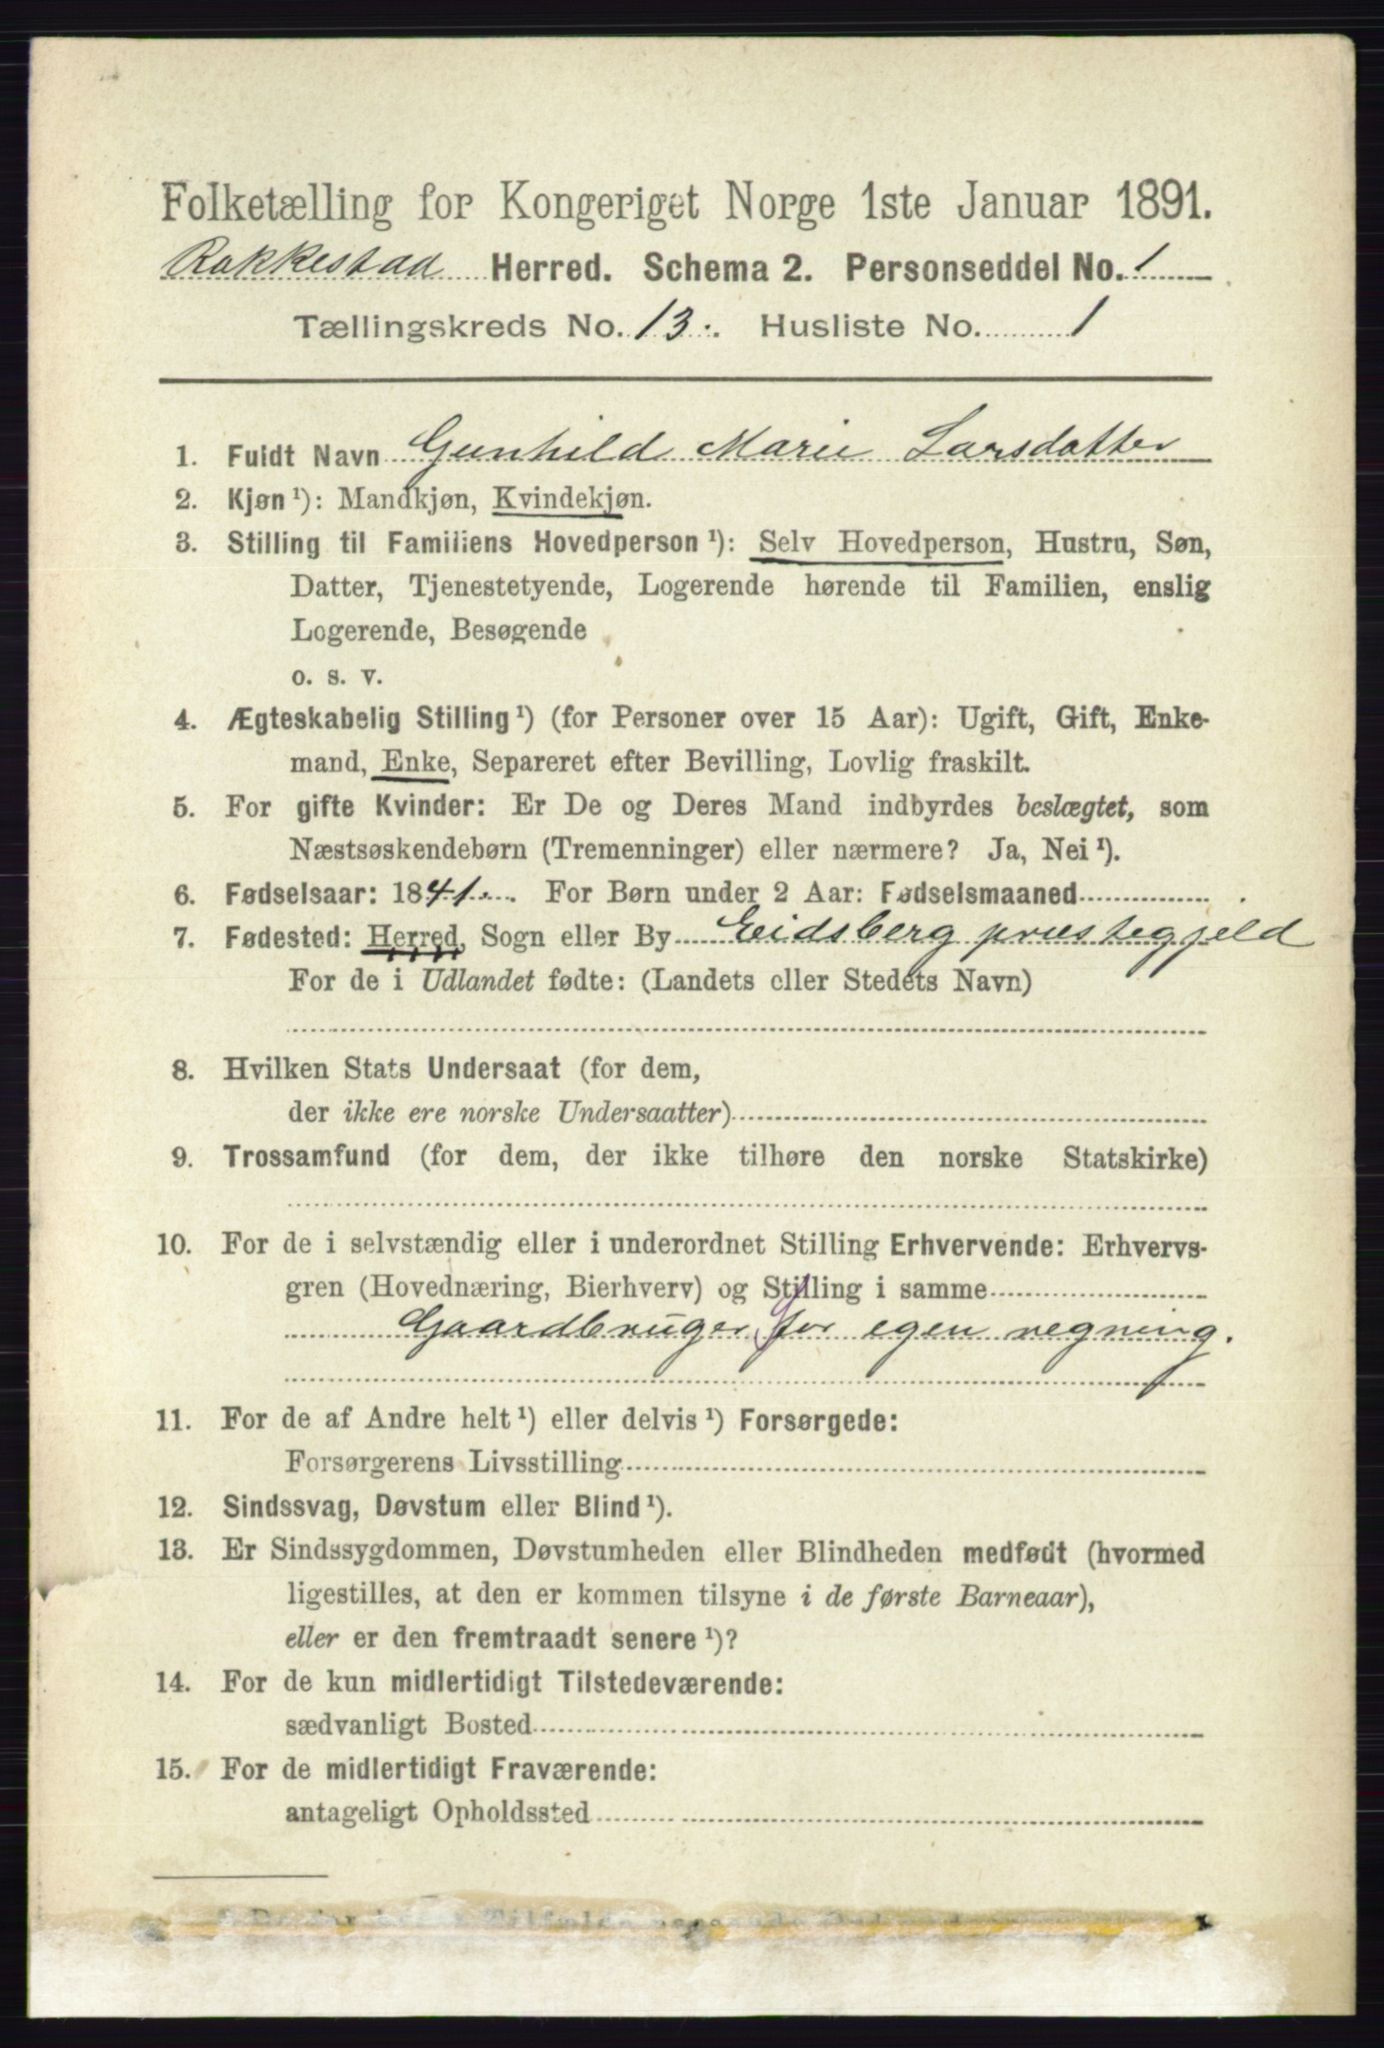 Folketælling for Kongeriget Norge 1ste Januar 1891.
Rakkestad Herred. Schema 2. Personseddel No. 1
Tællingskreds No. 13. Husliste No. 1
1. Fuldt Navn Gunhild Marie Larsdatter
2. Kjøn ¹): Mandkjøn, Kvindekjøn.
3. Stilling til Familiens Hovedperson ¹): Selv Hovedperson, Hustru, Søn,
Datter, Tjenestetyende, Logerende hørende til Familien, enslig
Logerende, Besøgende
o. s. v.
4. Ægteskabelig Stilling ¹) (for Personer over 15 Aar): Ugift, Gift, Enke-
mand, Enke, Separeret efter Bevilling, Lovlig fraskilt.
5. For gifte Kvinder: Er De og Deres Mand indbyrdes beslægtet, som
Næstsøskendebørn (Tremenninger) eller nærmere? Ja, Nei ¹).
6. Fødselsaar: 1841. For Børn under 2 Aar: Fødselsmaaned
7. Fødested: Herred, Sogn eller By Eidsberg præstegjeld
For de i Udlandet fødte: (Landets eller Stedets Navn)
8. Hvilken Stats Undersaat (for dem,
der ikke ere norske Undersaatter)
9. Trossamfund (for dem, der ikke tilhøre den norske Statskirke)
10. For de i selvstændig eller i underordnet Stilling Erhvervende: Erhvervs-
gren (Hovednæring, Bierhverv) og Stilling i samme
Gaardbruger for egen regning.
11. For de af Andre helt ¹) eller delvis ¹) Forsørgede:
Forsørgerens Livsstilling
12. Sindssvag, Døvstum eller Blind ¹).
13. Er Sindssygdommen, Døvstumheden eller Blindheden medfødt (hvormed
ligestilles, at den er kommen tilsyne i de første Barneaar),
eller er den fremtraadt senere ¹)?
14. For de kun midlertidigt Tilstedeværende:
sædvanligt Bosted
15. For de midlertidigt Fraværende:
antageligt Opholdssted